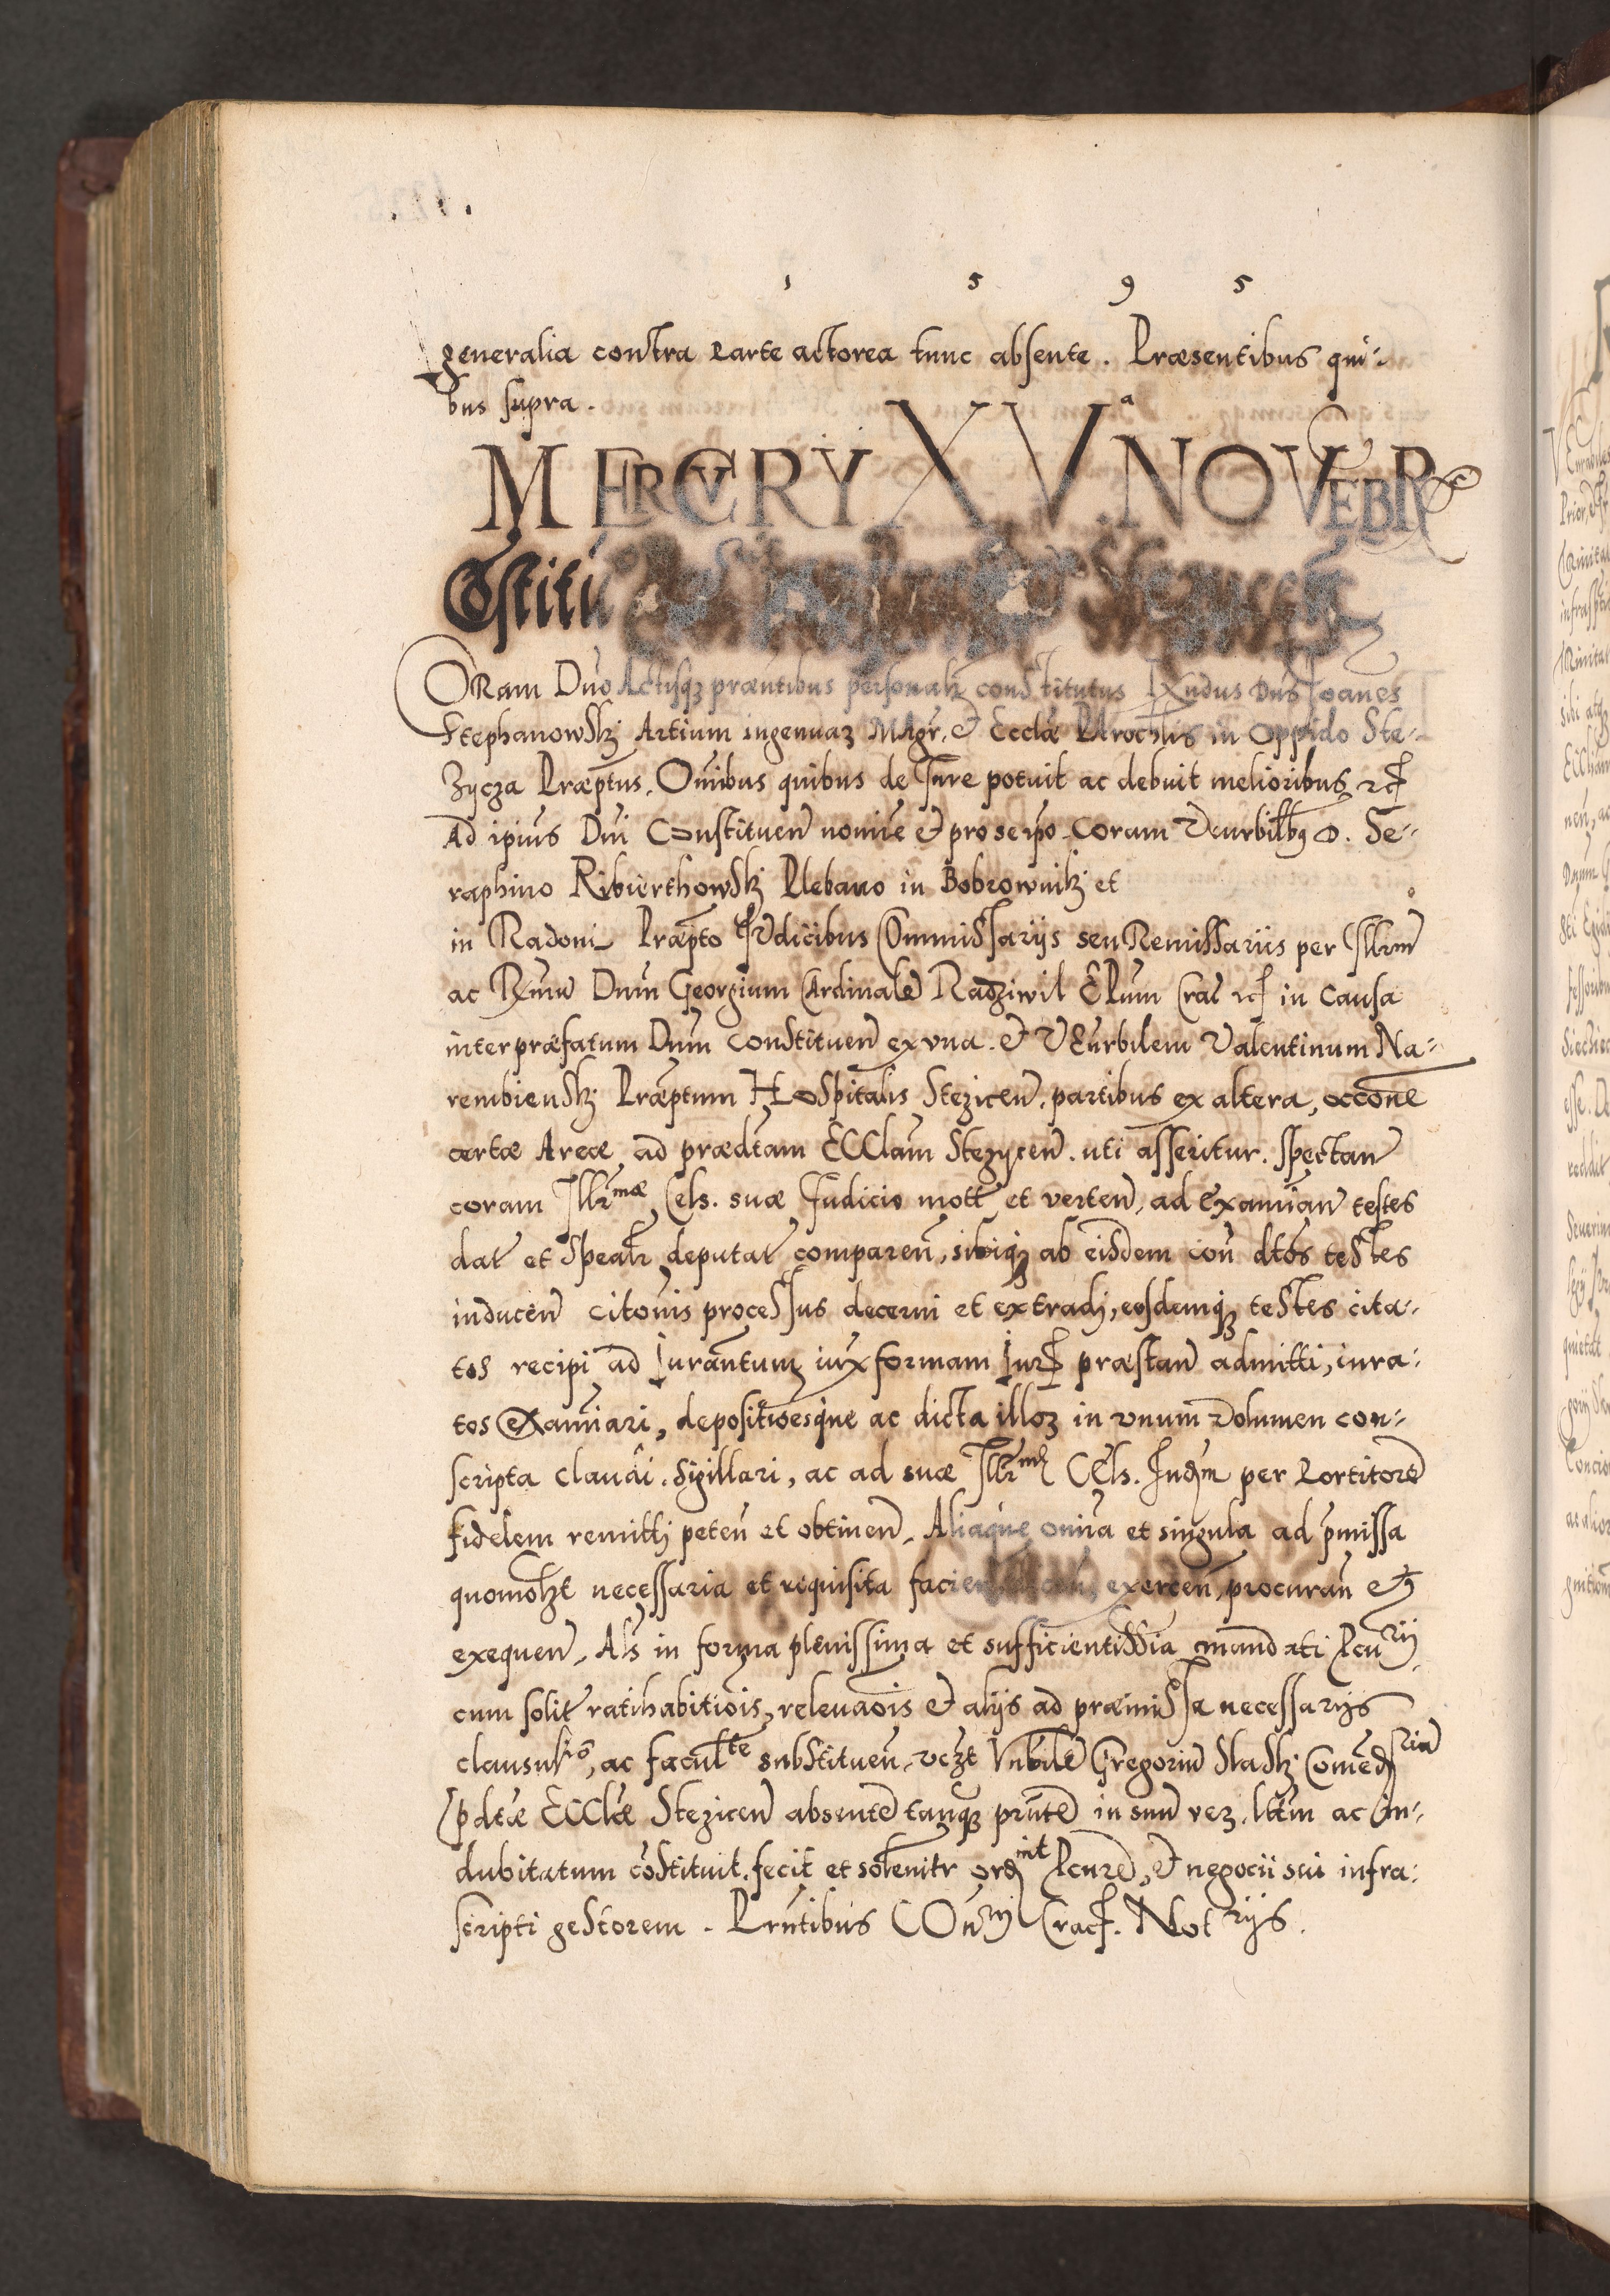 1 5 9 5
generalia contra parte actorea tunc absente. Præsentibus qui-
bus supra.
MERCURY XV.a NOVEBR
Cōstitu Stezycen̄
CORam Dn̄o Actisq₃ præntibus personalr constitutus Rn̄dus Dn̄s Joanes
Stephanowskj Artium ingenuaꝝ Magr, et Eccłæ Parochlis in oppido Ste-
zycza Præptus. Om̄ibus quibus de Jure potuit ac debuit melioribus ec̄
Ad ipius Dn̄i Constituen̄ nomīe et pro se ip̄o coram Venrbilibꝰ D. Se-
raphino Ribierthowskj Plebano in Bobrownikj et
in Radoni Præpto Judicibus Commissarijs seu Remissariis per Illrm̄o
ac Rm̄um Dnm̄ Georgium Cardinalē Radziwil Ep̄um Crac̄ ec̄ in causa
inter præfatum Dnm̄ constituen̄ ex una. et Venrbilem Valentinum Na-
rembienskj Præptum Hospitalis Stezicen̄. partibus ex altera, occōne
certæ Areæ ad prædtam Ecclam̄ Stezycen̄. uti asseritur. spectan̄
coram Illrmæ Cels. suæ Judicio mot̄ et verten̄, ad examīan̄ testes
dat̄ et spealr deputat̄ comparen̄, sibiq₃ ab eisdem con̄ dtos testes
inducen̄ citōnis processus decerni et extradj, eosdemq₃ testes cita-
tos recipi ad Juramtum iux formam Jur̄ præstan̄ admitti, iura-
tos examīari, depositiōesque ac dicta illoꝝ in unum Volumen con-
scripta claudi. sigillari, ac ad suæ Illrmæ Cels. Judm̄ per Portitorē
fidelem remitti peten̄ et obtinen̄. Aliaque om̄ia et singula ad p̄missa
quomolꝫt necessaria et requisita facien̄ exercen̄, procuran̄ et
exequen̄. Als in forma plenissima et sufficientissīa mandati Pcurij
cum solit̄ ratihabitiōis, relevaōis et alijs ad præmissa necessarijs
clausulis, ac facultte substituen̄. veꝫt Vnbilē Gregoriū Slaskj Comendriū
p̄dtæ Ecclæ Stezicen̄ absentē tanq̄₃ pn̄tē in suū veꝝ. lttm̄ ac in-
dubitatum cōstituit. fecit et solenitr ordint Pcurē, et negocii sui infra-
scripti gestorem. Prn̄tibus Con̄rij Crac̄. Notrijs.